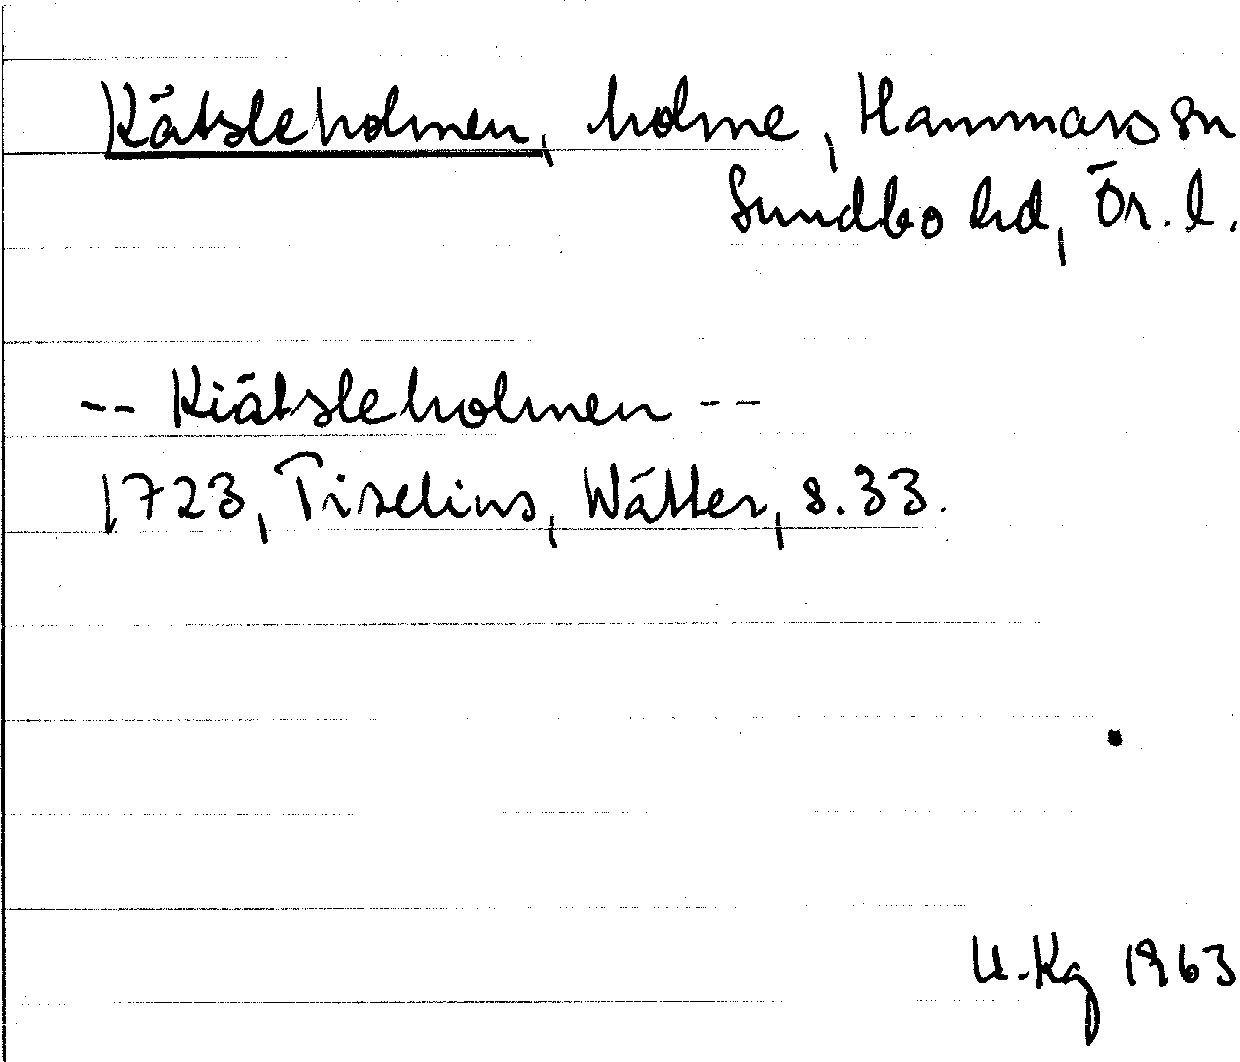 Kätsleholmen, holme, Hammars sn
Sundbo hd, Ör. l.
-- Kiätsleholmen --
1723, Tiselius, Wätter, s. 33.
U. Kg 1963